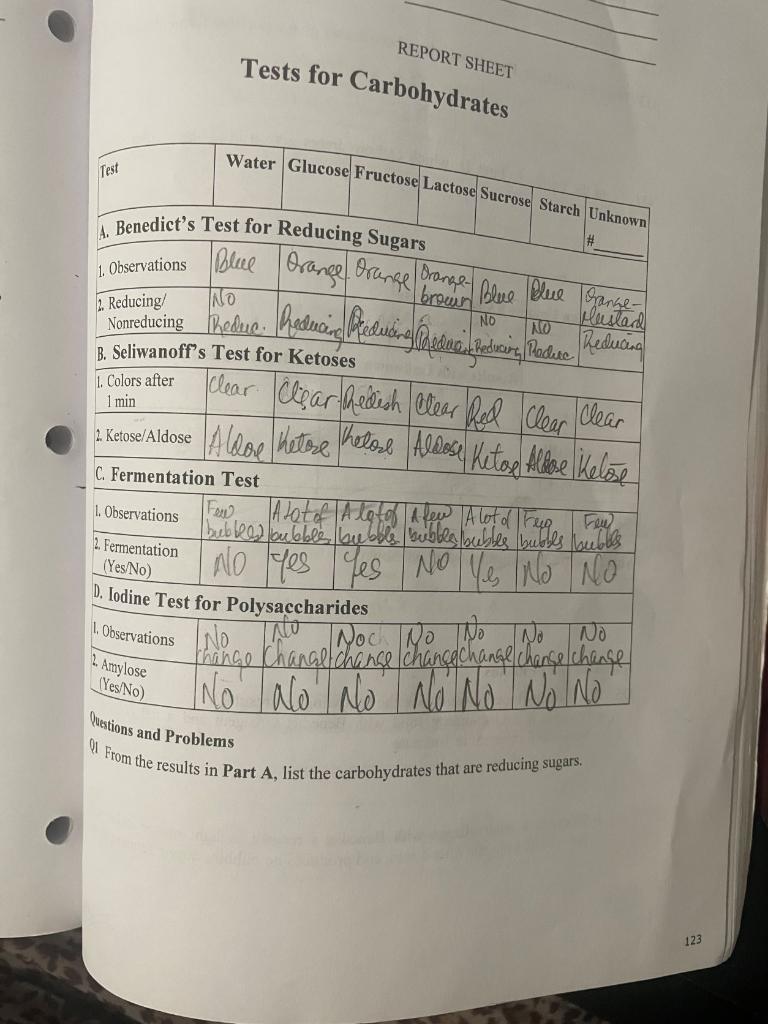 REPORT SHEET
Tests for Carbohydrates
Test Water Glucose Fructose Lactose Sucrose Starch Unknown #______
A. Benedict's Test for Reducing Sugars
1. Observations Blue Orange Orange Orange-brown Blue Blue Orange-Mustard
2. Reducing/Nonreducing NO Reduc. Reducing Reducing Reducing NO Reducing NO Reduce Reducing
B. Seliwanoff's Test for Ketoses
1. Colors after 1 min Clear Clear Redish Clear Red Clear Clear
2. Ketose/Aldose Aldose Ketose Ketose Aldose Ketose Aldose Ketose
C. Fermentation Test
1. Observations Few bubbles A lot of bubbles A lot of bubbles A few bubbles A lot of bubbles Few bubbles Few bubbles
2. Fermentation (Yes/No) NO Yes Yes NO Yes No NO
D. Iodine Test for Polysaccharides
1. Observations No change No Change No change No change No change No change No change
2. Amylose (Yes/No) No No No No No No No
Questions and Problems
Q1 From the results in Part A, list the carbohydrates that are reducing sugars.
123